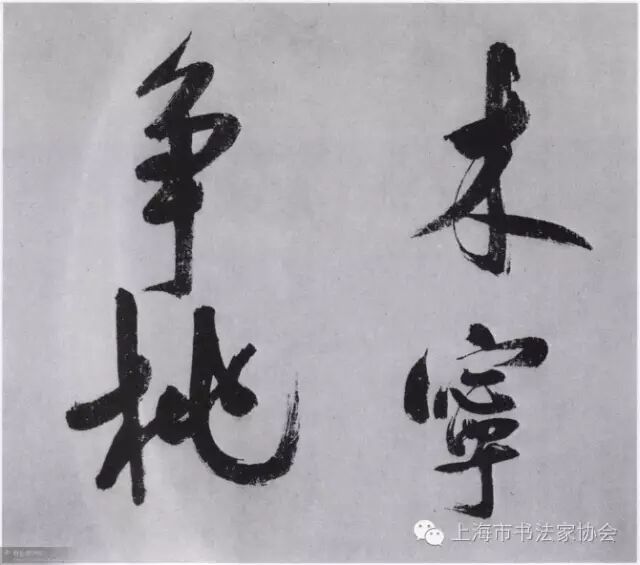 木寧
争桃
上海市书法家协会